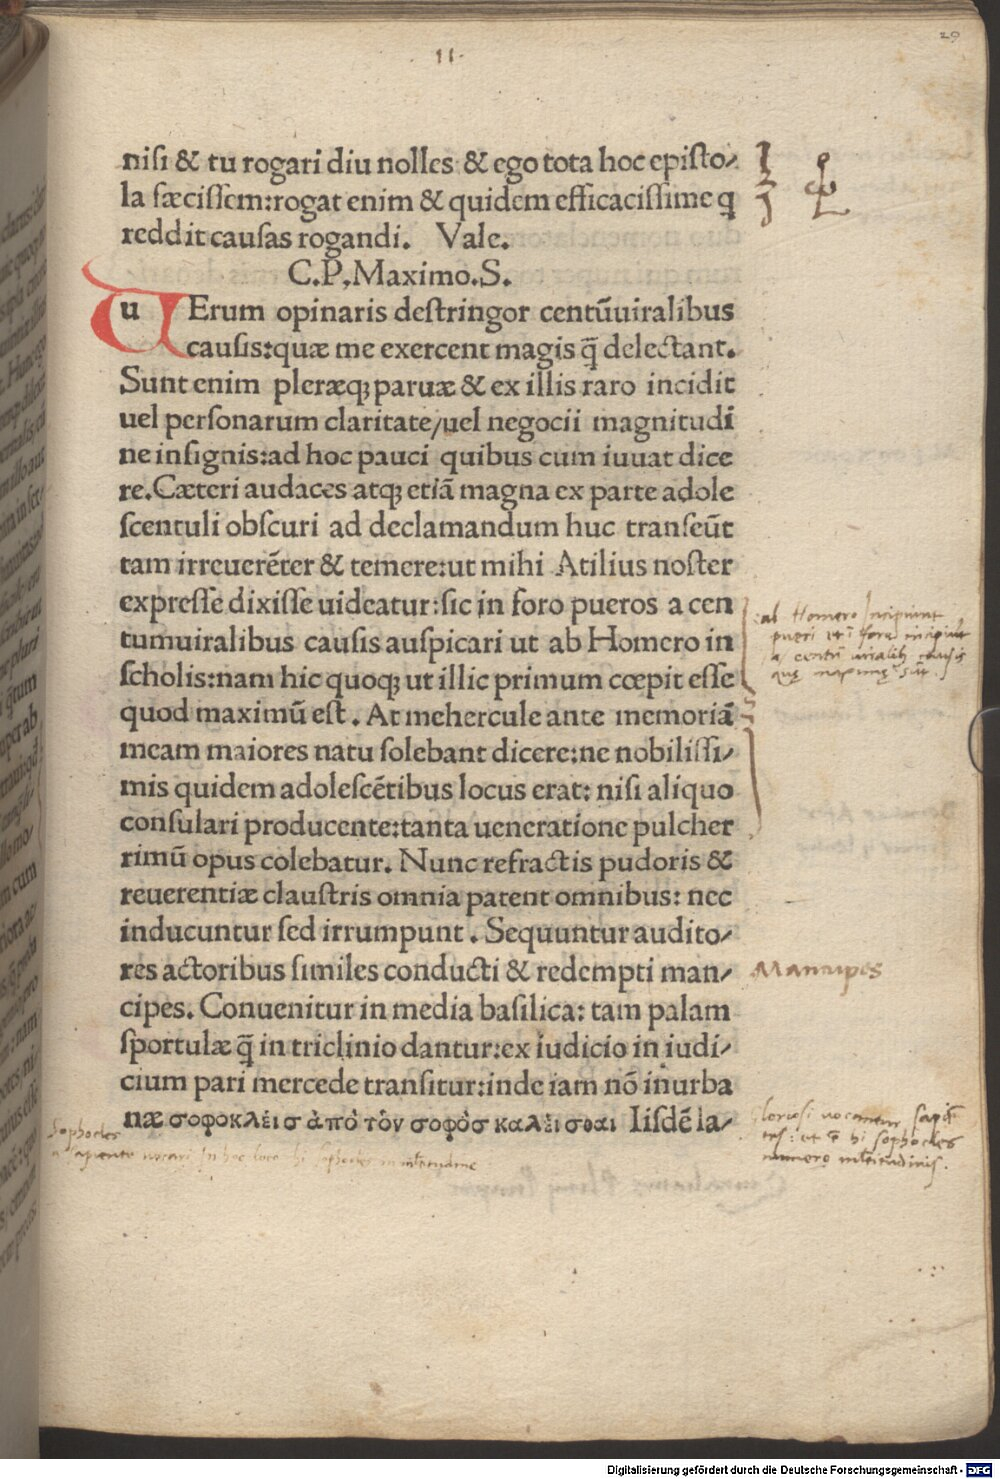 29
II.
nisi & tu rogari diu nolles & ego tota hoc episto/
la fæcissem:rogat enim & quidem efficacissime q
reddit causas rogandi. Vale.
C.P.Maximo.S.
uErum opinaris destringor centūuiralibus
causis:quæ me exercent magis q̄ delectant.
Sunt enim pleræqꝫ paruæ & ex illis raro incidit
uel personarum claritate/uel negocii magnitudi
ne insignis:ad hoc pauci quibus cum iuuat dice
re.Cæteri audaces atqꝫ etiā magna ex parte adole
scentuli obscuri ad declamandum huc transeūt
tam irreuerēter & temere:ut mihi Atilius noster
expresse dixisse uideatur:sic in foro pueros a cen
tumuiralibus causis auspicari ut ab Homero in
scholis:nam hic quoqꝫ ut illic primum cœpit esse
quod maximū est. At mehercule ante memoriā
meam maiores natu solebant dicere:ne nobilissi/
mis quidem adolescētibus locus erat: nisi aliquo
consulari producente:tanta ueneratione pulcher
rimū opus colebatur. Nunc refractis pudoris &
reuerentiæ claustris omnia patent omnibus: nec
inducuntur sed irrumpunt. Sequuntur audito/
res actoribus similes conducti & redempti man/
cipes. Conuenitur in media basilica: tam palam
sportulæ q̄ in triclinio dantur:ex iudicio in iudi/
cium pari mercede transitur:inde iam nō inurba
næ σοφοκλέισ ἀπὸ τὸν σοφὸσ καλέισθαι Iisdē la/
ab Homero Incipiunt
pueri
Mancipes
Sophocles
vocantur
hi sophocles
numero
Digitalisierung gefördert durch die Deutsche Forschungsgemeinschaft - DFG